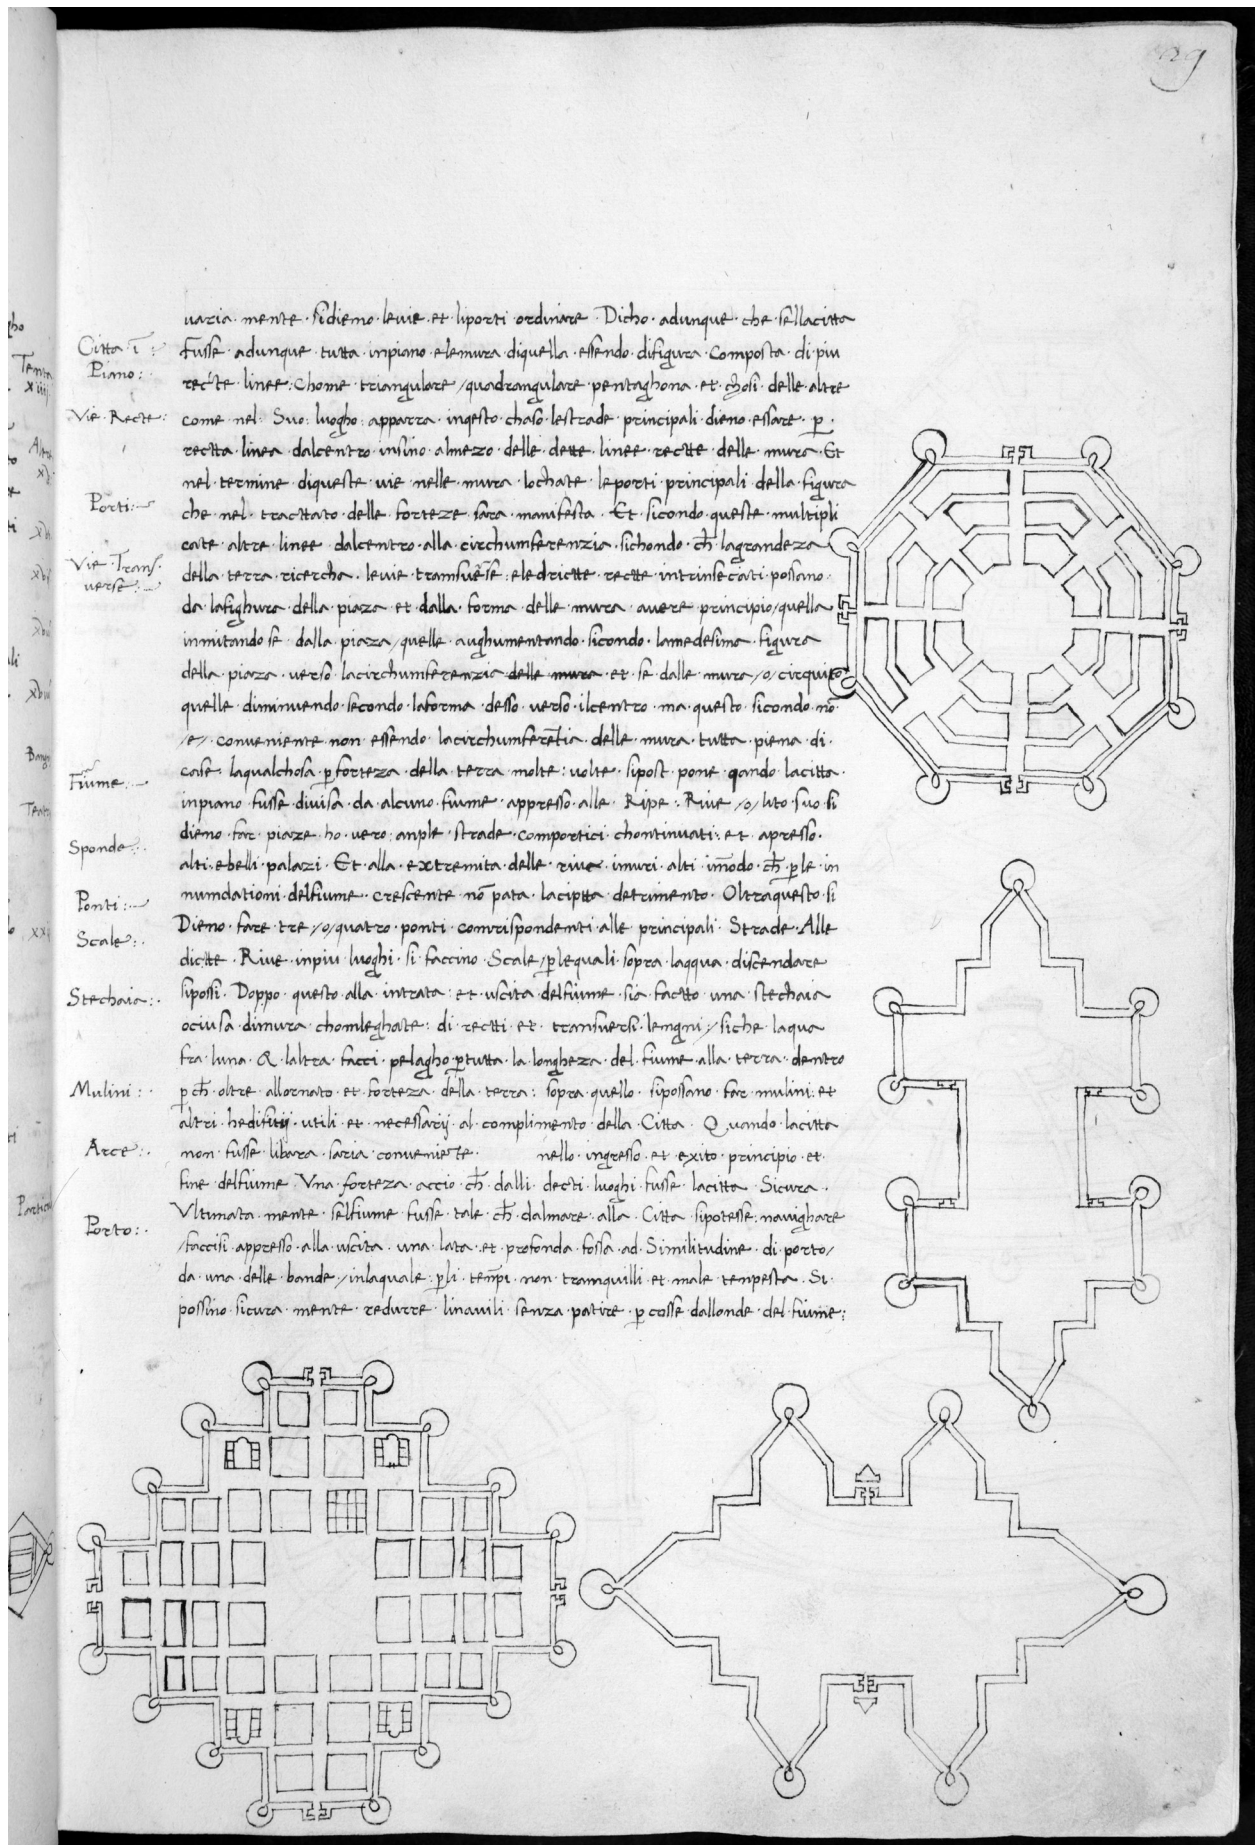 varia · mente · sidieno · levie · et · liporti · ordinare · Dicho · adunque · che · sellacitta
Citta · ī ·
Piano :
fusse · adunque · tutta · inpiano · elemura · diquella · essendo · difigura · composta · di · piu
recte · linee : Chome · triangulare / quadrangulare · pentaghona · et · chosi · delle · altre
Vie · Recte :
come · nel · Suo · luogho · apparra · inqesto · chaso · lestrade · principali · dieno · essare · p ·
rectta · linea · dalcentro · insino · almezo · delle · dette · linee · rectte · delle · mura · Et
nel · termine · diqueste · vie · nelle · mura · lochate · leporti · principali · della · figura
Porti :
che · nel · tracttato · delle · forteze · sara · manifesta · Et · sicondo · queste · multipli
cate · altre · linee · dalcentro · alla · circhumferenzia · sichondo · ch̄ · lagrandeza
Vie · Trans ·
verse :
della · terra · ricercha · levie · transverse : eledrictte · rectte · intrinsecati · possano ·
da · lafighura · della · piaza · et · dalla · forma · delle · mura · avere · principio / quella
inmitando se · dalla · piaza / quelle · aughumentando · sicondo · lamedesima · figura
della · piaza · verso · lacirchumferenzia · delle · mura · et · se · dalle · mura / o / cirquito
quelle · diminuendo · secondo · laforma · desso · verso · ilcentro · ma · questo · sicondo · nō
/ e / · conveniente · non · essendo · lacirchumferētia · delle · mura · tutta · piena · di ·
case · laqualchosa · p forteza · della · terra · molte : volte · sipost · pone · qando · lacitta ·
Fiume :
inpiano · fusse · divisa · da · alcuno · fiume · appresso · alle · Ripe : Rive / o / lito · suo · si
dieno · far · piaze · ho · vero · anple · strade · comportici · chontinuati : et · apresso ·
Sponde :
alti : ebelli · palazi · Et · alla · extremita · delle · rive · imuri · alti · imōdo · ch̄ · p le · in
numdationi · delfiume · crescente · nō pata · laciptta · detrimento · Oltraquesto · si
Ponti :
Dieno · fare · tre / o / quatro · ponti · conrispondenti · alle · principali · Strade · Alle
Scale :
dictte · Rive · inpiu · luoghi · si · faccino · Scale / p lequali · sopra · laqqua · discendare
Stechaia :
sipossi · Doppo · questo · alla · intrata : et · uscita · delfiume · sia · factto · una · stechaia
ociusa · dimura · chomleghate : di · rectti · et · transversi · lengni / siche · laqua
fra · luna · & · laltra · facci · pelagho · p tutta · la · longheza · del · fiume · alla · terra · dentro
Mulini :
p ch̄ · oltre · allornato · et · forteza · della · terra : sopra · quello · sipossano · far · mulini : et
altri · hedifitij · utili · et · necessarij · al · complimento · della · Citta · Quando · lacitta
Arce :
non · fusse · libara · saria · conveniente · nello · ingresso · et · exito · principio · et ·
fine · delfiume · Una · forteza · accio · ch̄ · dalli · decti · luoghi · fusse · lacitta · Sicura ·
Ultimata · mente · selfiume · fusse · tale · ch̄ · dalmare · alla · Citta · sipotesse · navighare
Porto :
/ faccisi · appresso · alla · uscita · una · lata · et · profonda · fossa · ad · Similitudine · di · porto /
da · una · delle · bande / inlaquale : p li · tempi · non · tramquilli · et · male · tempesta · Si ·
possino · sicura · mente · redurre · linavili · senza · patire · p cosse · dallonde · del · fiume :